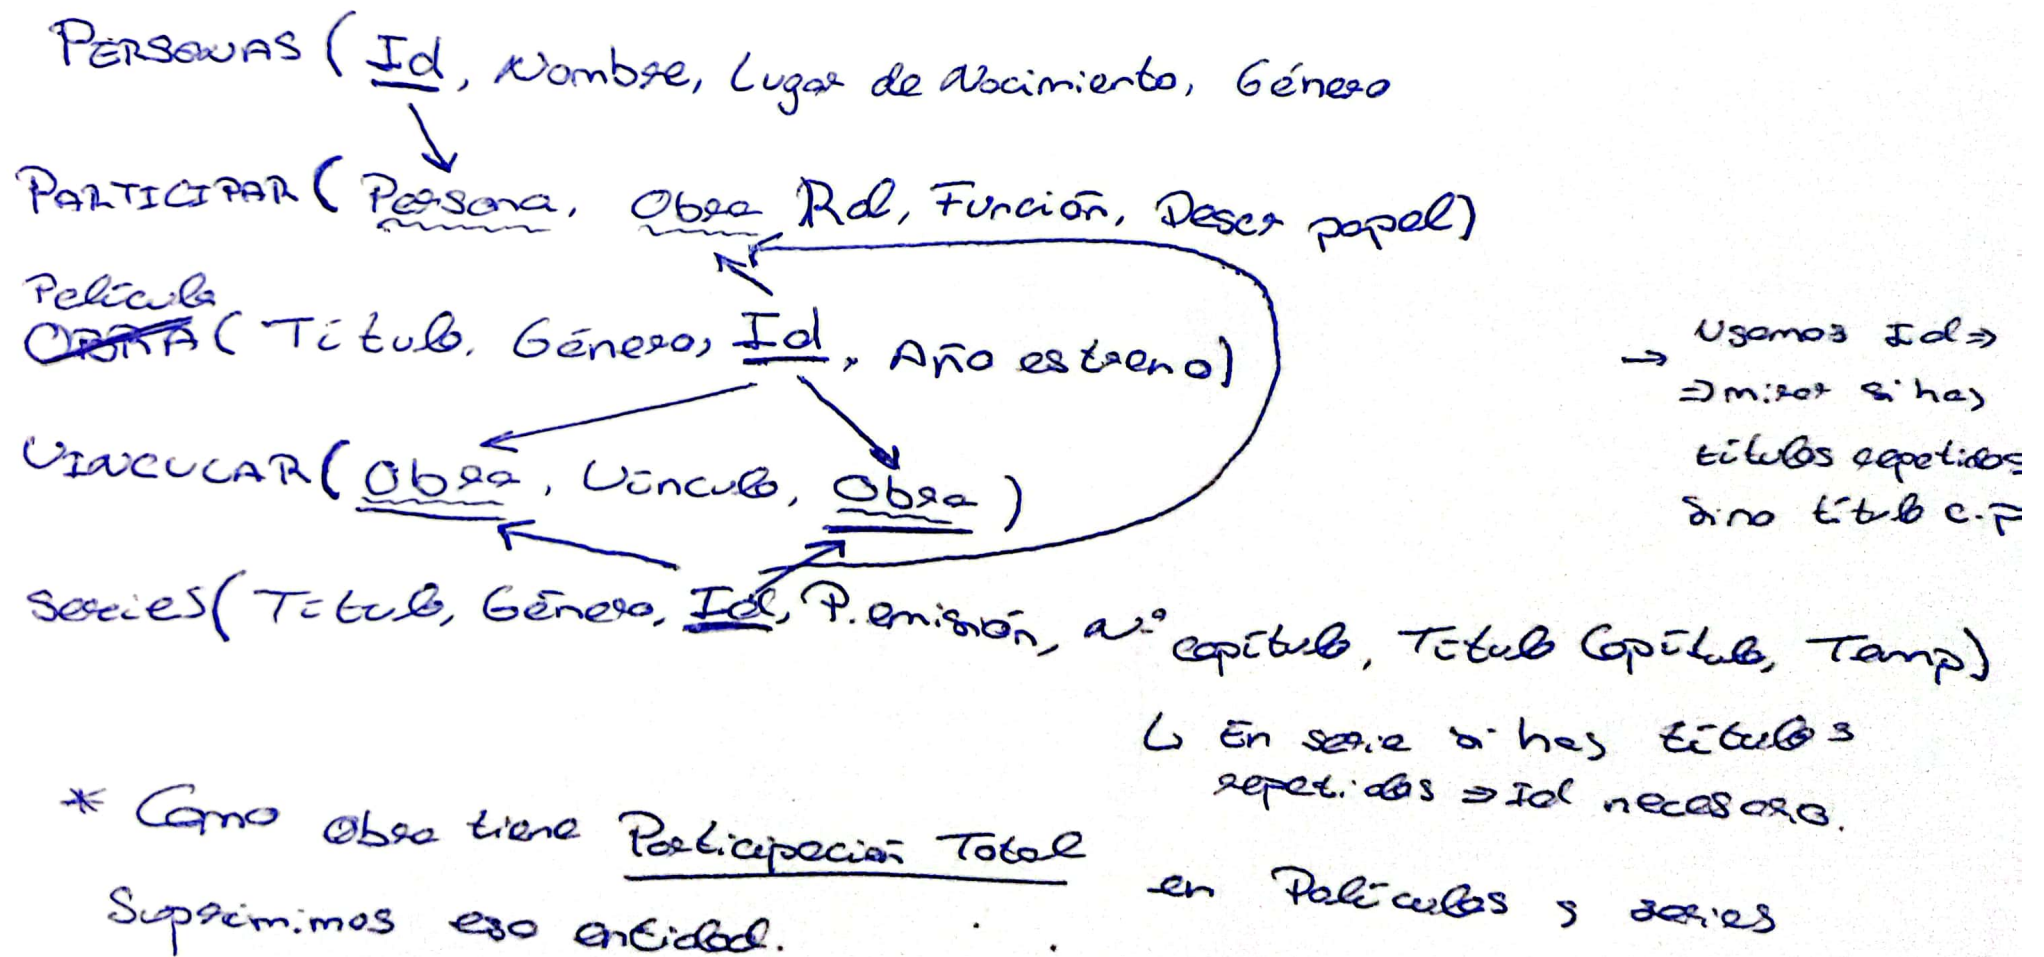 PERSONAS (Id, Nombre, Lugar de Nacimiento, Género
PARTICIPAR (Persona, Obra Rol, Función, Descr papel)
Película
OBRA (Título, Género, Id, Año estreno)
→ Usamos Id ⇒
⇒ mirar si hay
títulos repetidos
sino título c.p
VINCULAR (Obra, Vínculo, Obra)
Series (Título, Género, Id, P. emisión, Nº capítulo, Título Capítulo, Temp)
↳ En serie si hay títulos
repetidos ⇒ Id necesario.
* Como obra tiene Participación Total en Películas y series
Suprimimos esa entidad.